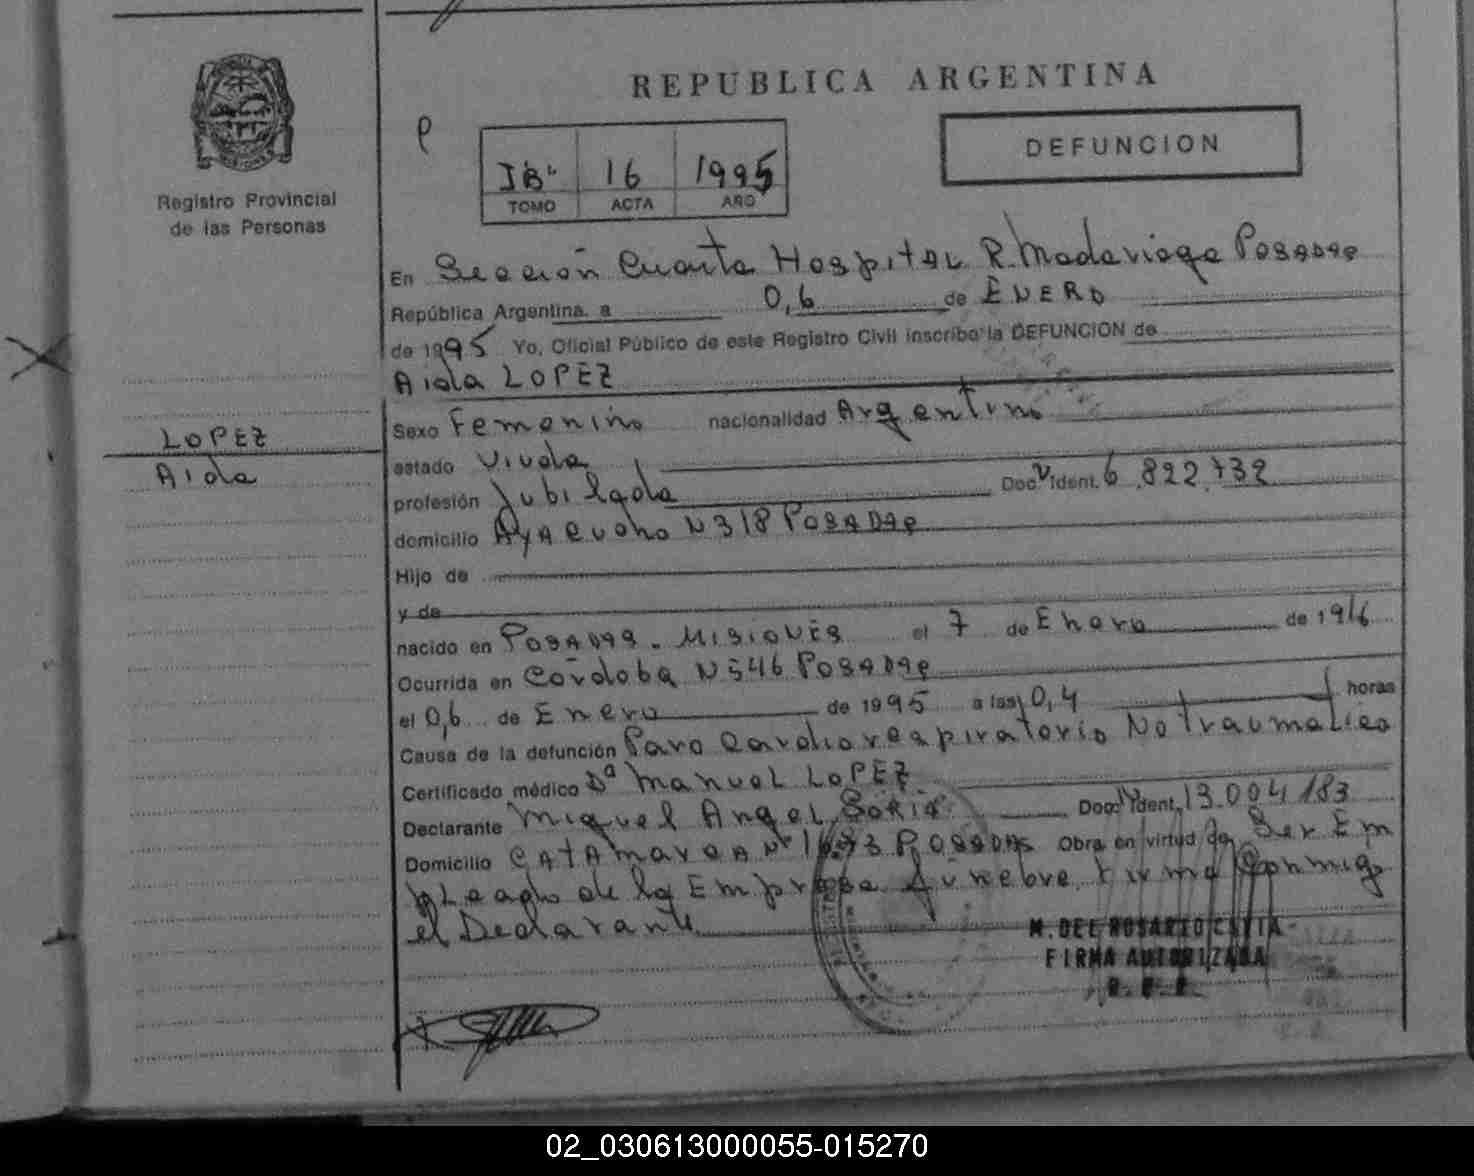 REPUBLICA ARGENTINA
DEFUNCION
Registro Provincial
de las Personas
16 1995
TOMO ACTA AÑO
En Sección Cuarta Hospital R. Madariaga Posadas
República Argentina, a 0,6 de ENERO
de 1995 Yo, Oficial Público de este Registro Civil inscribo la DEFUNCION de
Aida LOPEZ
LOPEZ
Aida
Sexo Femenino nacionalidad Argentina
estado Viuda
profesión Jubilada Doc. Ident. 6.822.732
domicilio Ayacucho N 318 Posadas
Hijo de
y de
nacido en Posadas - Misiones el 7 de Enero de 1916
Ocurrida en Córdoba N 546 Posadas
el 0,6 de Enero de 1995 a las 0,4 horas
Causa de la defunción Paro Cardiorespiratorio No Traumatico
Certificado médico Manuel LOPEZ
Declarante Miguel Angel Doc. Ident. 13.004.183
Domicilio CATAmarca Nº Posadas Obra en virtud de Ser Em
pleado de la Empresa Funebre Firma Conmigo
el Declarante
M. DEL ROSARIO
FIRMA AUTORIZADA
02_030613000055-015270